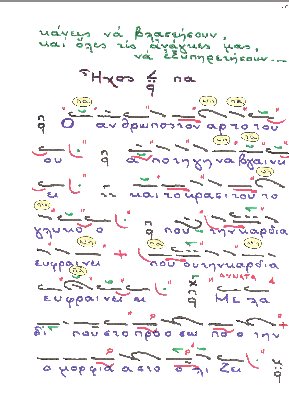 κάνεις νά βλαστήσουν,
καί ὅλες τίς ἀνάγκες μας,
νά ἐξυπηρετήσουν...
Ἦχος πα
Ο αν θρω πος τον αρ το του
ου α πο τη γη να βγαι νει
ει και το κρα σι του το
γλυκο ο που την καρδια
ευφραινει που ου την καρδια
ευφραινει ει Με λα
δι που στο προ σω πο ο την
ο μορφια α στο ο λι ζει